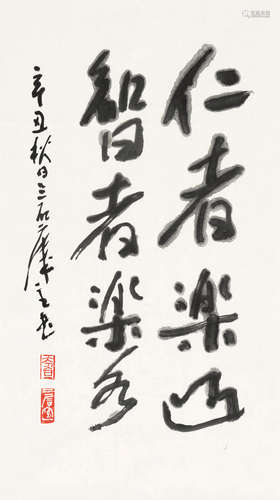 仁者樂山
智者樂水
辛丑秋日三石廬主書